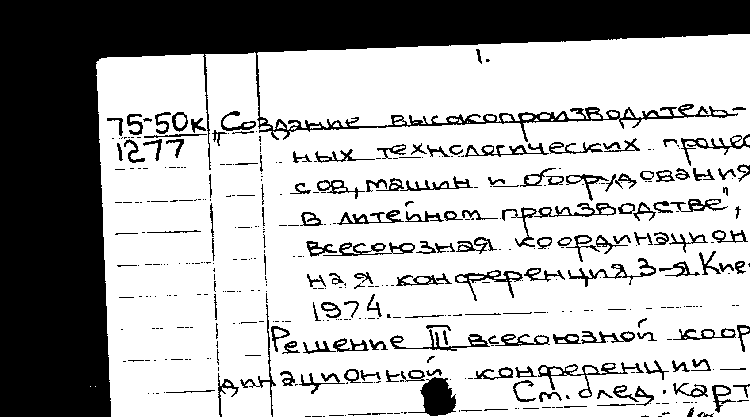 1.
75-50к „Создание высокопроизводитель-
1277 ных технологических процес
сов, машин и оборудования
в литейном производстве",
всесоюзная координацион
ная конференция, 3-я. Кие
1974.
Решение III всесоюзной коор
динационной конференции
См. след. карт